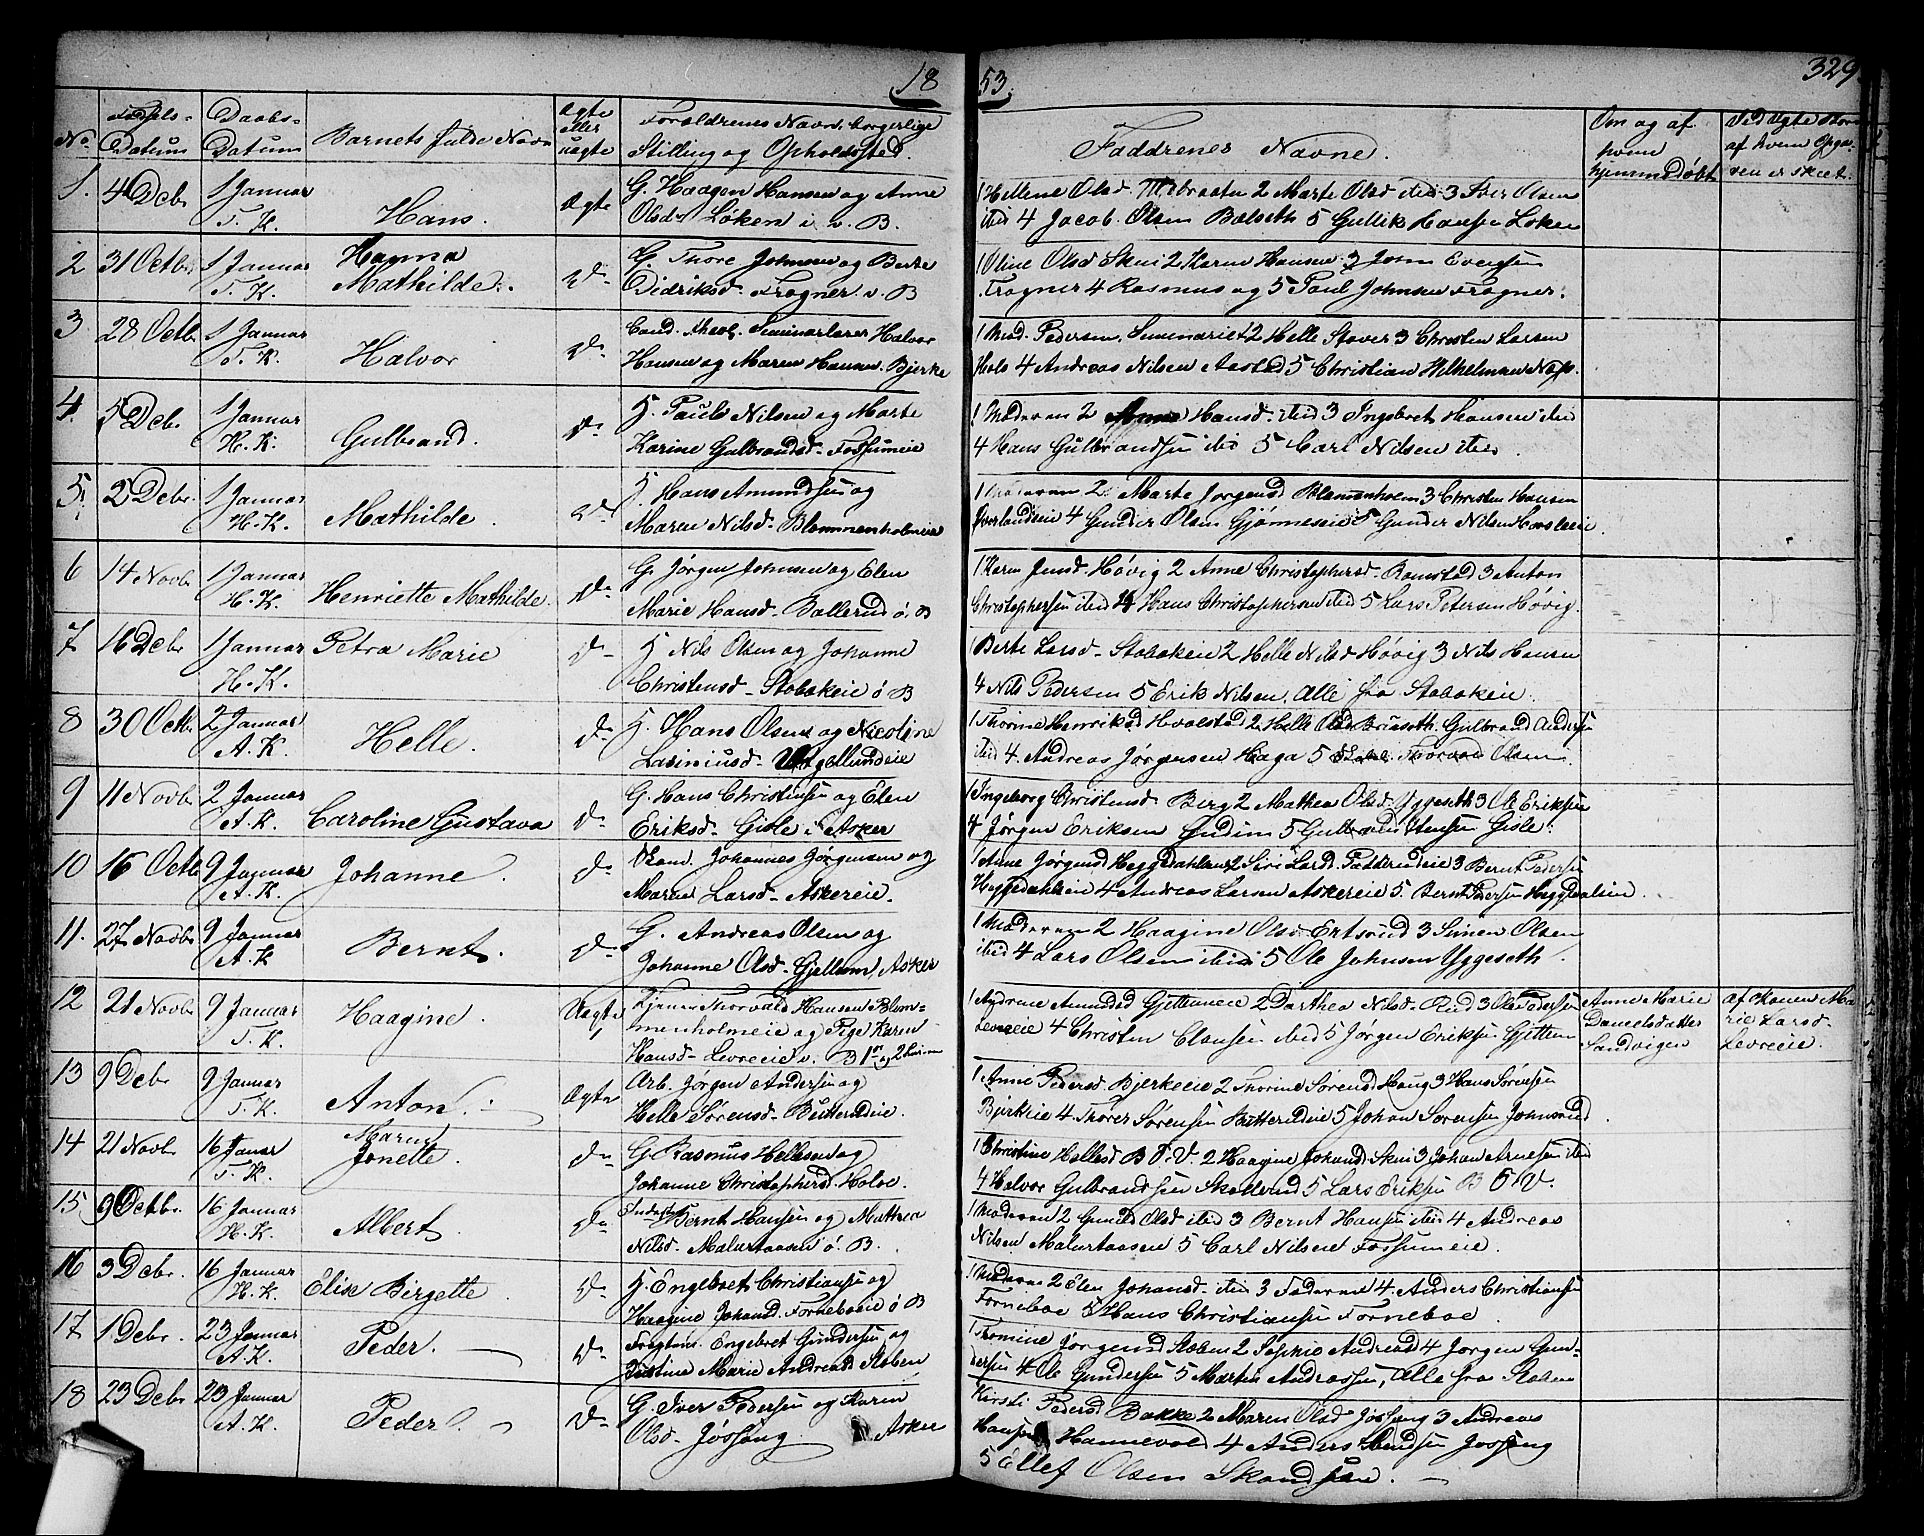 18 53. 329
No. Fødsels-Datum Daabs-Datum Barnets fulde Navn Ægte eller uægte Forældrenes Navn, borgerlige Stilling og Opholdsted. Faddrenes Navne. Om og af hvem hjemmedøbt
1. 4 Decbr 1 Januar T. K. Hans. Ægte G. Haagen Hansen og Anne
Olsd Løken i v. B.
1 Hellene Olsd 2 Marte Olsd ibid 3 Iver Olsen
ibid 4 Jacob Olsen Bælseth 5 Gullik Hansen Løken
2 31 Octbr. 1 Januar T. K. Hanna Mathilde. Do G. Thore Johnsen og Berte
Didriksd. Frogner v. B
1 Oline Olsd Skui 2 Karen Hansen 3 John Evensen
Frogner 4 Rasmus og 5 Paul Johnsen Frogner.
3 28 Octbr. 1 Januar T. K. Halvor Do Cand. theol. Seminarlærer Halvor
Hansen og Maren Hansen Bjerke
1 Mad. Pedersen, Seminariet 2 Helle Staver 3 Christen Larsen
Hols 4 Andreas Nilsen Aastad 5 Christian Wilhelmsen Næss.
4. 5 Decbr. 1 Januar H. K. Gulbrand. Do H. Paul Nilsen og Marte
Karine Gulbrandsd. Fossumeie
1 Moderen 2 Anne Hansd. ibid 3 Ingebret Hansen ibid
4 Hans Gulbrandsen ibid 5 Carl Nilsen ibid.
5. 2 Decbr. 1 Januar H. K. Mathilde. Do H. Hans Amundsen og
Maren Nilsd. Blommenholmeie
1 Moderen 2 Marte Jørgensd Blommenholm 3 Christen Hansen
4 Gunder Olsen Gjønneseie 5 Gunder Nilsen Haslleie
6 14 Novb. 1 Januar H. K. Henriette Mathilde. Do G. Jørgen Johnsen og Elen
Marie Hansd. Ballerud ø. B
1 Karen Jensd. Høvig 2 Anne Christophersd. Ramstad 3 Anton
Christophersen ibid 4 Hans Christophersen ibid 5 Lars Petersen Høvig.
7 16 Decbr 1 Januar H. K. Petra Marie Do H Nils Olsen og Johanne
Christensd. Stabekeie ø B
Berte Larsd. Stabekeie 2 Helle Nilsd Høvig 3 Nils Hansen
4 Nils Pedersen 5 Erik Nilsen, Alle fra Stabekeie.
8 30 Octb. 2 Januar A. K. Helle. Do H. Hans Olsen og Nicoline
Lasiniusd.
1 Thorine Henriksd Hvalstad 2 Helle Olsd Bruseth Gulbrand Andersen
ibid 4. Andreas Jørgensen Haga 5 Thorvald Olsen
9 11 Novb. 2 Januar A. K. Caroline Gustava Do G. Hans Christensen og Elen
Eriksd. Gisle i Asker
1 Ingeborg Christensd. Berg 2 Mathea Olsd. Yggeseth 3 Ole Eriksen
4 Jørgen Eriksen Undem 5 Gulbrand Hansen Gisle.
10 16 Octb 9 Januar A. K. Johanne. Do Johannes Jørgensen og
Maren Larsd. Askereie.
1 Anne Jørgensd Heggedahlen 2 Siri Larsd. 3 Bernt Pedersen
Heggedahleie 4 Andreas Larsen Askereie 5. Bernt Pedersen Heggedahleie.
11. 27 Novbr 9 Januar A. K Bernt. Do G. Andreas Olsen og
Johanne Olsd. Gjellum, Asker
1 Moderen 2 Haagine Olsd Ertsrud 3 Simen Olsen
ibid 4 Lars Olsen ibid 5 Ole Johnsen Yggeseth.
12 21 Novb. 9 Januar T. K. Haagine. Uægte Tjener Thorvald Hansen Blom-
menholmeie og Pige Karen
Hansd. Levreeie v. B 1ste og 2
1 Andrine Amundsd Gjettumeie 2 Dorthea Nilsd. Rud 3 Ole Pedersen
Levreeie 4 Christen Clausen ibid 5 Jørgen Eriksen Gjettum
Anne Marie Danielsdatter Sandvigen
af Konen Marie Larsd. Levreeie.
13 9 Decbr 9 Januar T. K. Anton. Ægte Arb. Jørgen Andersen og
Helle Sørensd. Butterudeie.
1 Anne Pedersd. Bjerkeeie 2 Thorine Sørensd Haug 3 Hans Sørensen
Bjerkeie 4 Thorer Sørensen Butterudeie 5 Johan Sørensen Johnsrud
14 21 Novb. 16 Januar T. K. Maren Jonette. Do G. Rasmus Hellesen og
Johanne Christophersd. Holoe.
1 Christine Hellesd B. V. 2 Haagine Johansd. Skui 3 Johan Arnesen ibid
4 Halvor Gulbrandsen Skollerud 5 Lars Eriksen B. V.
15 9 Octbr. 16 Januar H. K. Albert. Do Bernt Hansen og Mathea
Nilsd. Malurtaasen ø. B.
1 Moderen 2 Gunild Olsd ibid 3 Bernt Hansen ibid 4 Andreas
Nilsen Malurtaaseie 5 Carl Nilsen Fossumeie.
16 3 Decbr. 16 Januar H. K. Elise Birgette. Do H. Engebret Christiansen og
Haagine Johansd. Forneboeie ø B
1 Moderen 2 Elen Johansd. ibid 3 Faderen 4. Anders Christiansen
Forneboe 5 Hans Christiansen Forneboe.
17 1 Decbr. 23 Januar A. K. Peder. Do Engebret Gundersen og
Justine Marie Andreasd Staben
1 Thomine Jørgensd Staben 2 Sophie Andreasd 4 Jørgen Gun-
dersen 4 Ole Gundersen 5 Martin Andreassen, Alle fra Staben
18 23 Decbr 23 Januar A. K. Peder. Do G. Iver Pedersen og Karen
Olsd. Jøssong. Asker
Kirsti Pedersd Bakke 2 Maren Olsd Jøssong 3 Andreas
Hansen Hannevold 4 Anders Jøssong
5 Ellef Olsen